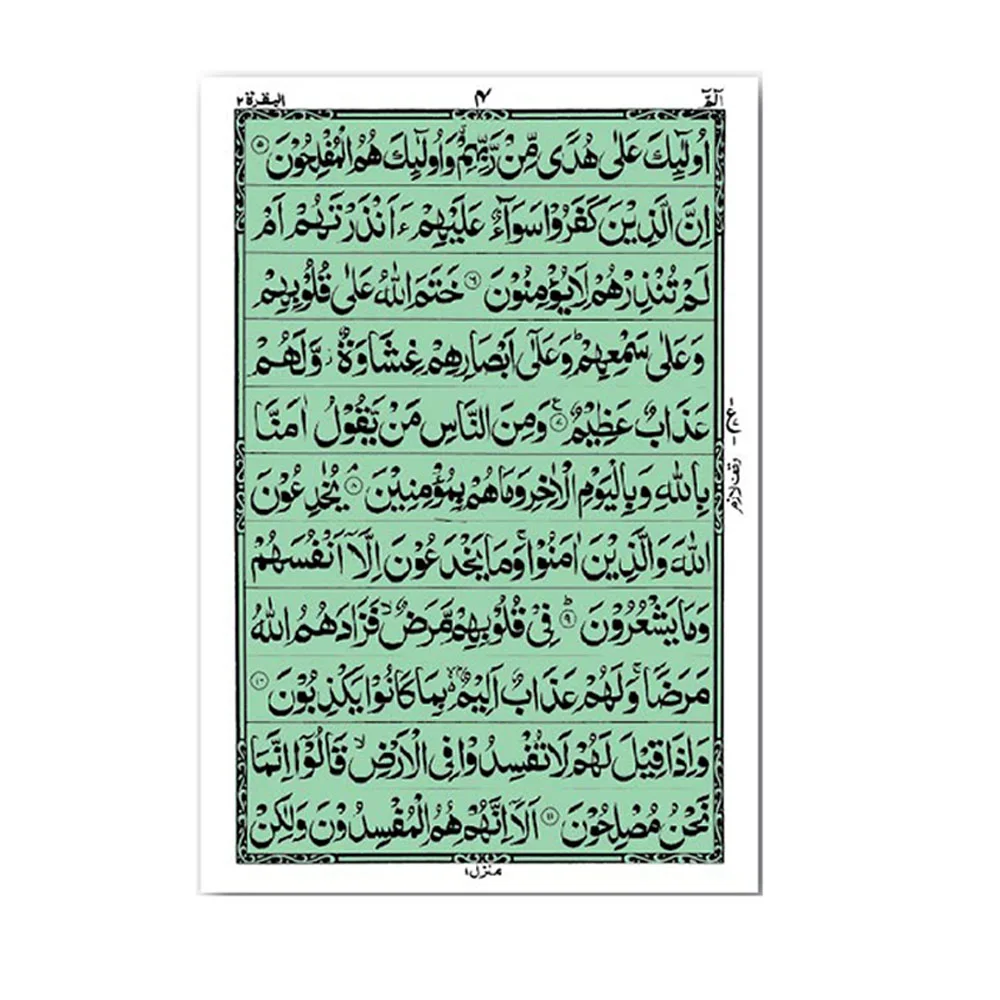 الٓمّٓ ۴ البقرة ٢
اُولٰٓئِكَ عَلٰى هُدًى مِّنْ رَّبِّهِمْ ۗ وَاُولٰٓئِكَ هُمُ الْمُفْلِحُوْنَ ۝۵
اِنَّ الَّذِيْنَ كَفَرُوْا سَوَآءٌ عَلَيْهِمْ ءَاَنْذَرْتَهُمْ اَمْ
لَمْ تُنْذِرْهُمْ لَا يُؤْمِنُوْنَ ۝۶ خَتَمَ اللّٰهُ عَلٰى قُلُوْبِهِمْ
وَعَلٰى سَمْعِهِمْ ؕ وَعَلٰٓى اَبْصَارِهِمْ غِشَاوَةٌ ز وَّلَهُمْ
عَذَابٌ عَظِيْمٌ ۝۷ ع وَمِنَ النَّاسِ مَنْ يَّقُوْلُ اٰمَنَّا
بِاللّٰهِ وَبِالْيَوْمِ الْاٰخِرِ وَمَا هُمْ بِمُؤْمِنِيْنَ ۝۸ۘ يُخٰدِعُوْنَ
اللّٰهَ وَالَّذِيْنَ اٰمَنُوْا ۚ وَمَا يَخْدَعُوْنَ اِلَّآ اَنْفُسَهُمْ
وَمَا يَشْعُرُوْنَ ۝۹ؕ فِيْ قُلُوْبِهِمْ مَّرَضٌ ۙ فَزَادَهُمُ اللّٰهُ
مَرَضًا ۚ وَلَهُمْ عَذَابٌ اَلِيْمٌ ۢ ۙ بِمَا كَانُوْا يَكْذِبُوْنَ ۝۱۰
وَاِذَا قِيْلَ لَهُمْ لَا تُفْسِدُوْا فِي الْاَرْضِ ۙ قَالُوْٓا اِنَّمَا
نَحْنُ مُصْلِحُوْنَ ۝۱۱ اَلَآ اِنَّهُمْ هُمُ الْمُفْسِدُوْنَ وَلٰكِنْ
منزل ۱
ع
وقف لازم